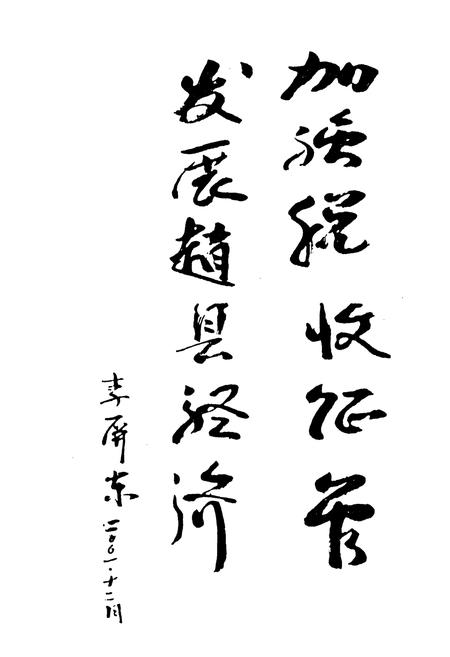 加强税收征管
发展赵县经济
李屏东 二〇〇一·十二月